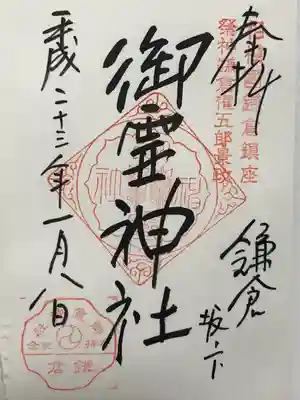 奉拝
鎌倉
坂ノ下
祭神鎌倉権五郎景政
御霊神社
平成二十三年一月八日